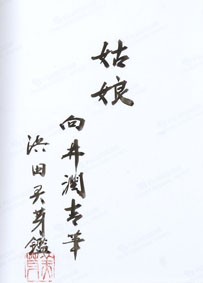 姑娘
向井潤吉筆
浜田天芽鑑